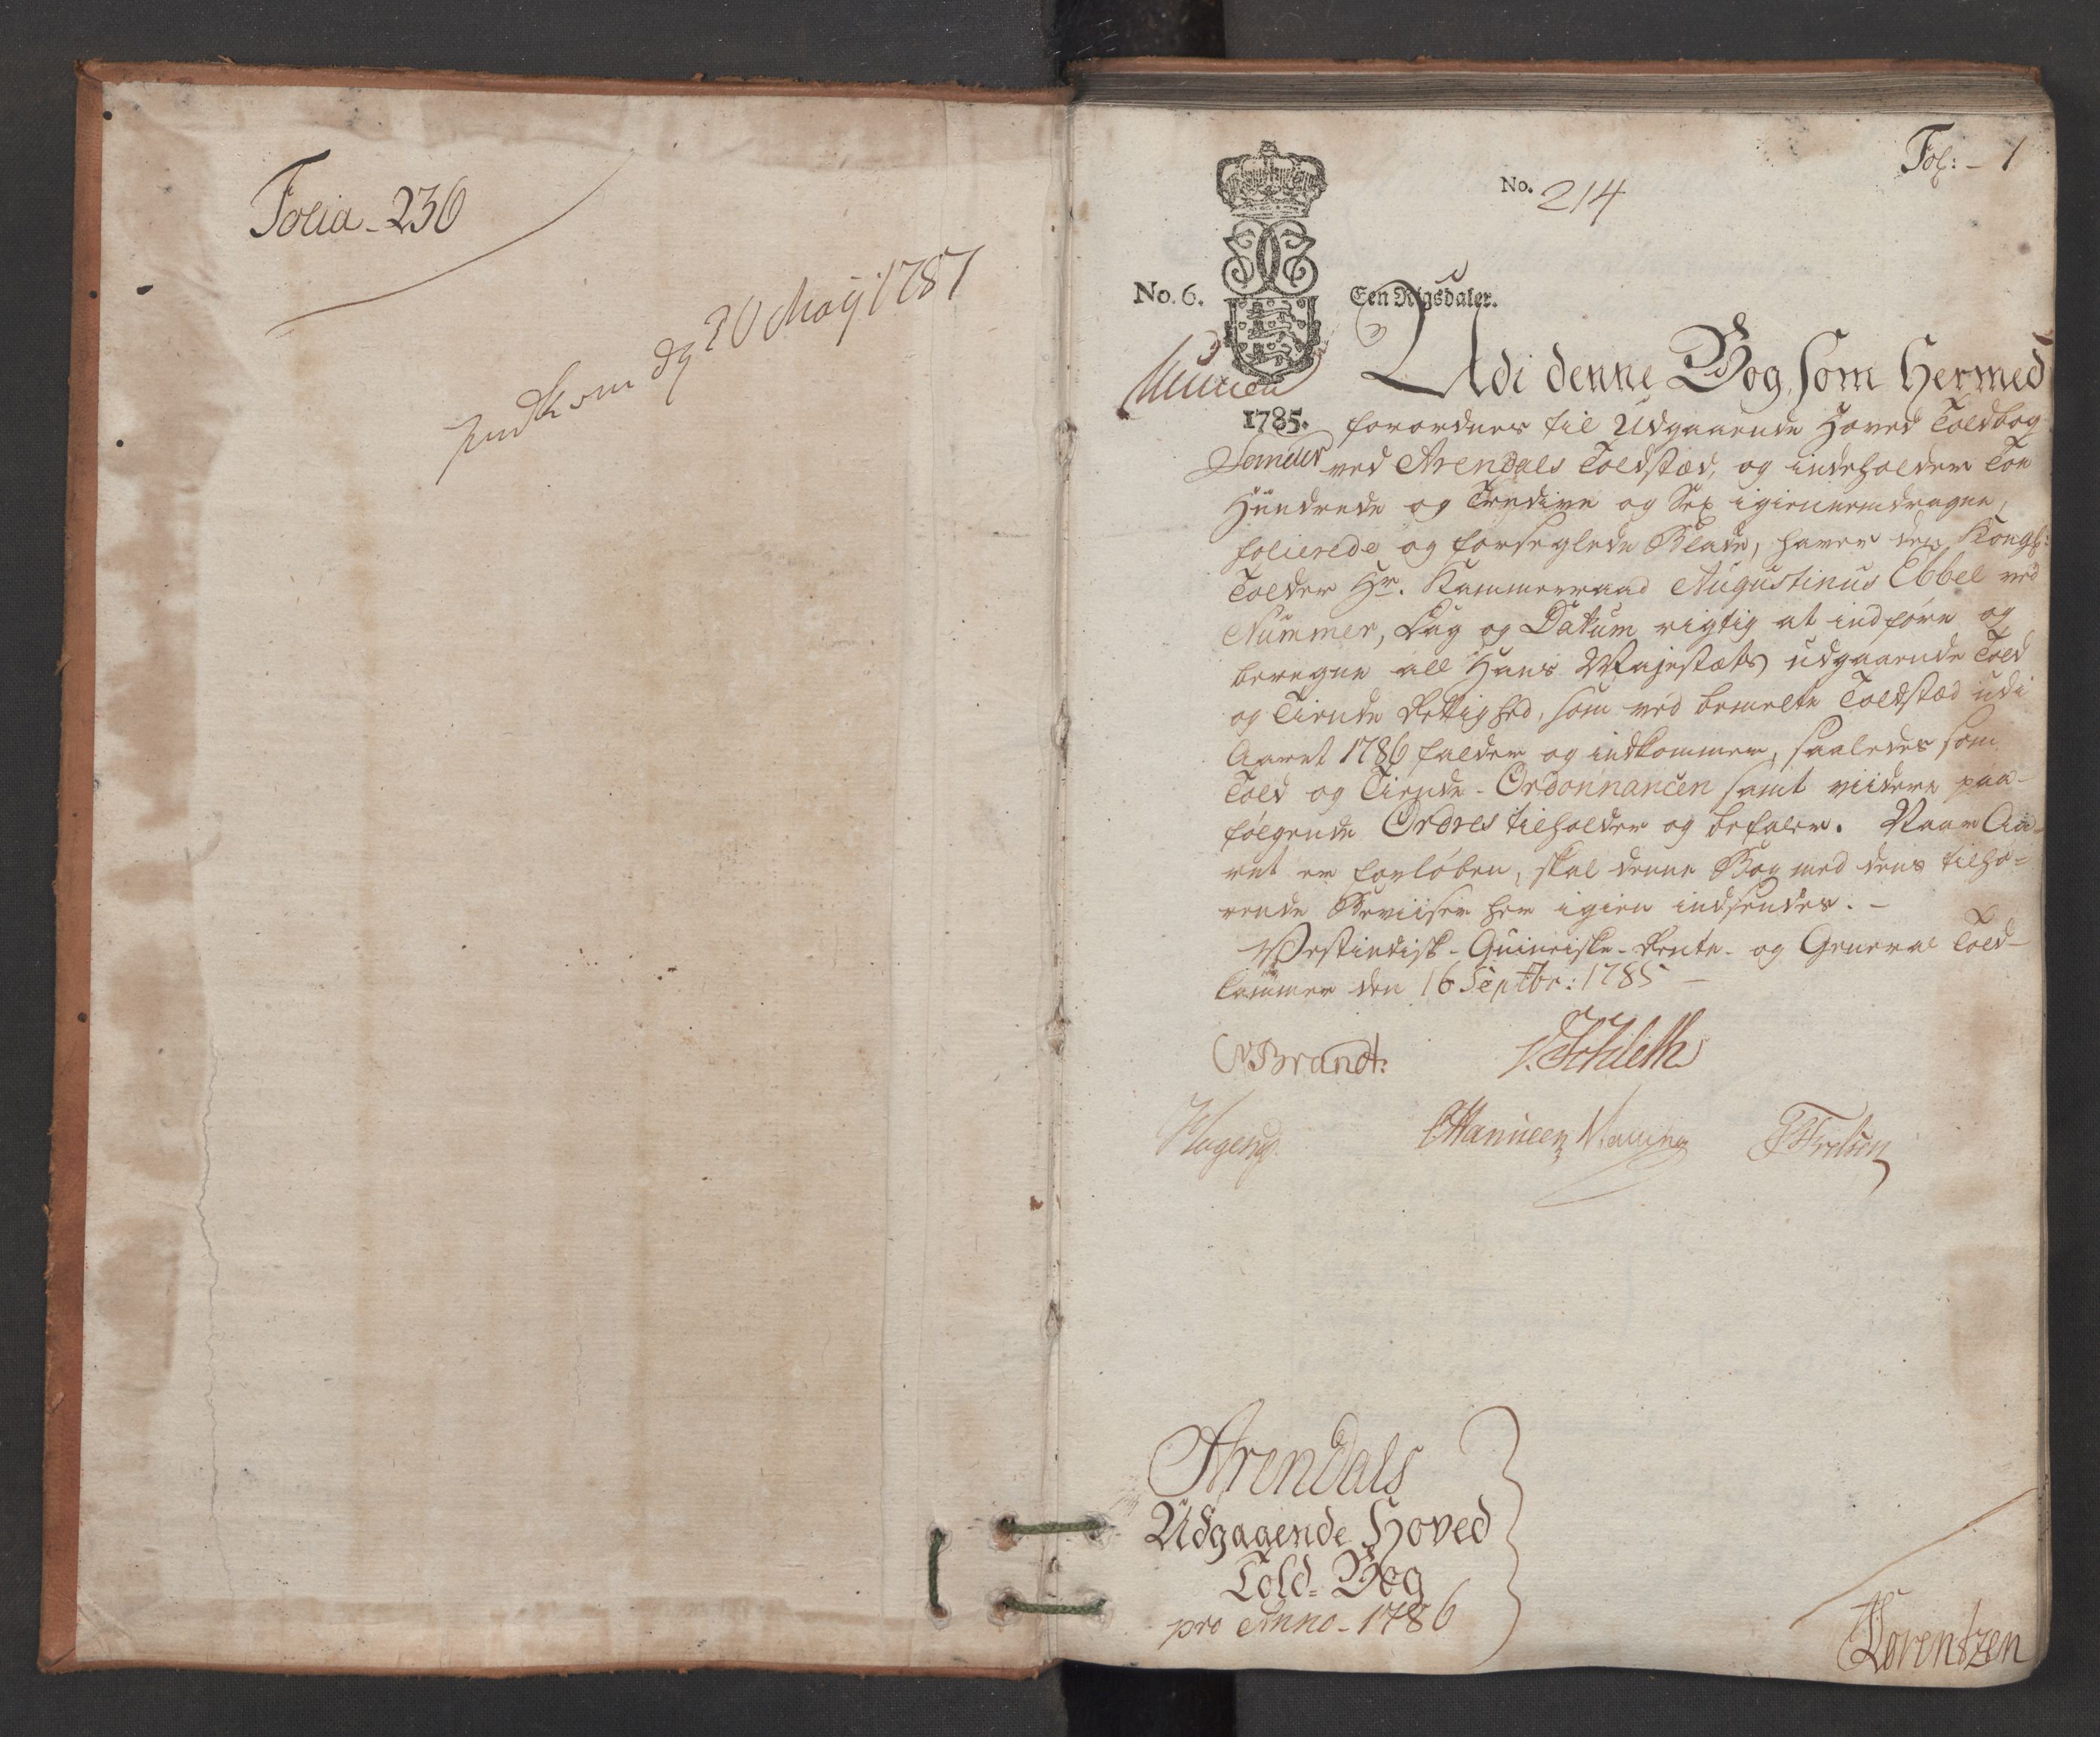 Folia - 236
Indkom d 20 Maij 1787
Fol: - 1
No. 214
No. 6. Een Rigsdaler.
Udi denne Bog, som hermed
1785. forordnes til Udgaaende Hoved Toldbog
ved Arendals Toldstæd, og indeholder Toe
Hundrede og Tredive og Sex igiennemdragne,
folierede og forseglede Blade, haver den Kongl:
Tolder Hr. Kammerraad Augustinus Ebbel ved
Nummer, Dag og Datum rigtig at indføre og
beregne all Hans Majestæts udgaaende Told
og Tiende Rettighed, som ved bemelte Toldstæd udi
Aaret 1786 falder og indkommer, saaledes som
Told og Tiende-Ordonnancen samt viidere paa-
følgende Ordres tilholder og befaler. Naar Aa-
ret er forløben, skal denne Bog med dens tilhø-
rende Beviiser her igien indsendes. -
Vestindisk-Guineiske-Rente- og General Told-
kammer den 16 Septbr: 1785 -
Brandt. Schilth
Arendals
Udgagende Hoved
Told-Bog
pro Anno - 1786
Lorentzen